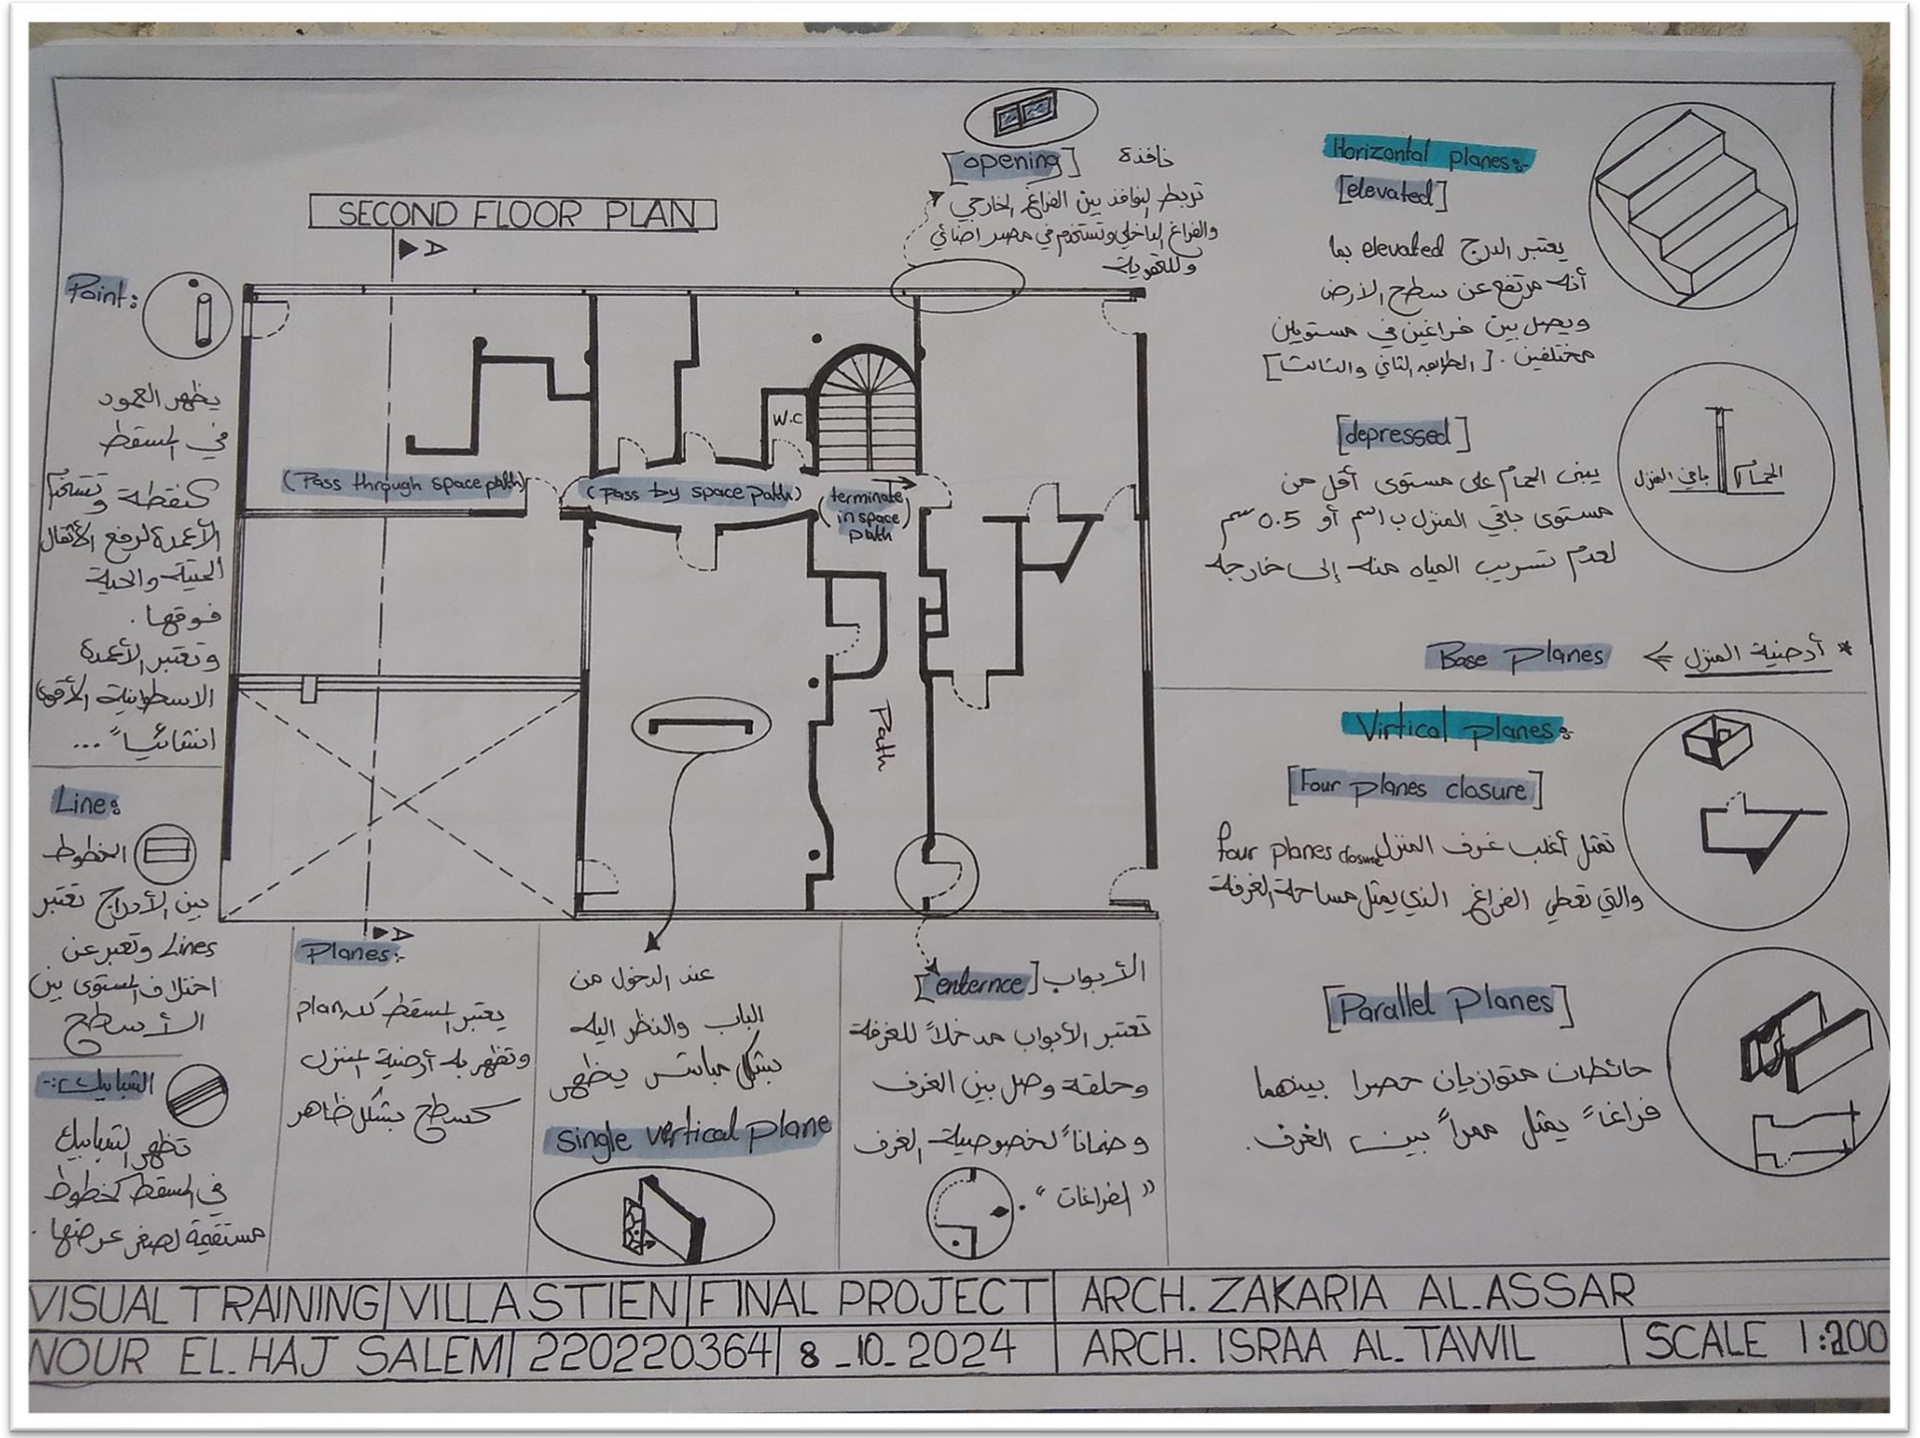 SECOND FLOOR PLAN
A
Point:
يظهر العمود
في المسقط
كنقطة وتستخدم
الأعمدة لرفع الأثقال
الميتة والحية
فوقها.
وتعتبر الأعمدة
الاسطوانية الأقوى
انشائياً ...
Line:
الخطوط
بين الأدراج تعتبر
Lines وتعبر عن
اختلاف المستوى بين
الأسطح
الشبابيك:-
تظهر الشبابيك
في المسقط كخطوط
مستقيمة لصغر عرضها.
(Pass through space path)
(pass by space path)
(terminate
in space
path)
W.C
Path
A
[opening] نافذة
تربط النوافذ بين الفراغ الخارجي
والفراغ الداخلي وتستخدم في مصدر اضائي
وللتهوية
Planes:-
يعتبر المسقط كـ plan
وتظهر به أرضية المنزل
كسطح بشكل ظاهر
عند الدخول من
الباب والنظر اليه
بشكل مباشر يظهر
single vertical plane
الأبواب [enternce]
تعتبر الأبواب مدخلاً للغرفة
وحلقة وصل بين الغرف
وضماناً لخصوصية الغرف
"الفراغات".
Horizontal planes:-
[elevated]
يعتبر الدرج elevated بما
أنه مرتفع عن سطح الأرض
ويصل بين فراغين في مستويين
مختلفين. [الطابق الثاني والثالث]
[depressed]
يبنى الحمام على مستوى أقل من
مستوى باقي المنزل ب 1سم أو 0.5 سم
لعدم تسريب المياه منه إلى خارجه
باقي المنزل
الحمام
* أرضية المنزل ⇒ Base planes
Virtical planes:-
[Four planes closure]
تمثل أغلب غرف المنزل four planes closure
والتي تغطي الفراغ الذي يمثل مساحة الغرفة
[Parallel planes]
حائطان متوازيان حصرا بينهما
فراغاً يمثل ممراً بين الغرف.
VISUAL TRAINING | VILLA STIEN | FINAL PROJECT | ARCH. ZAKARIA AL-ASSAR
NOUR EL-HAJ SALEM | 220220364 | 8-10-2024 | ARCH. ISRAA AL-TAWIL | SCALE 1:200